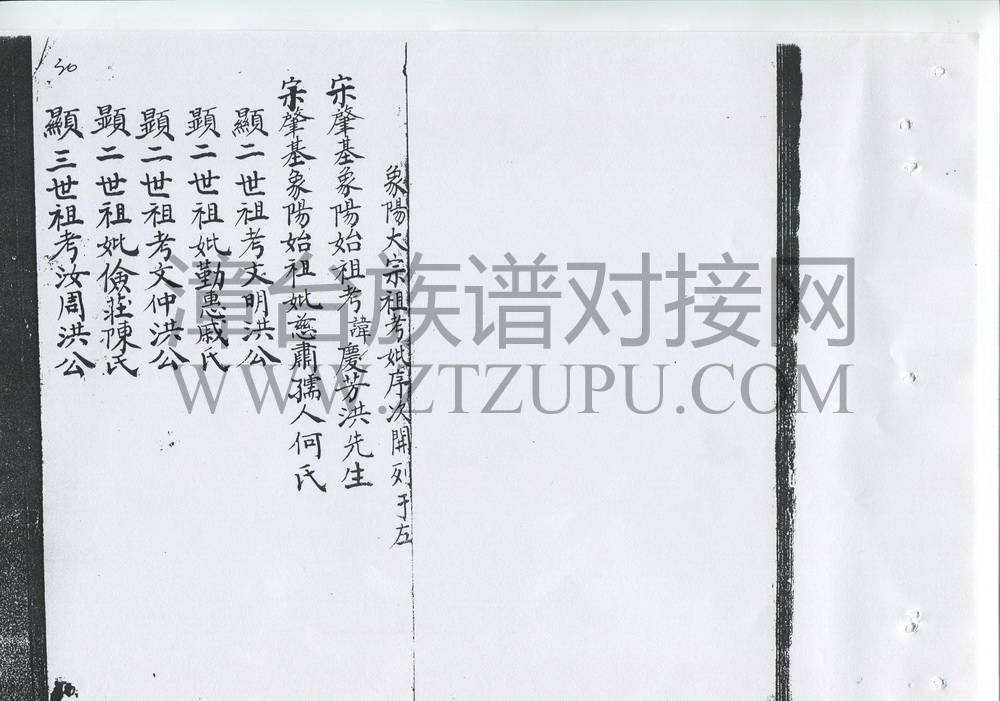 象陽大宗祖考妣序次開列于左
宋肇基象陽始祖考諱慶芳洪先生
宋肇基象陽始祖妣慈肅孺人何氏
顯二世祖考文明洪公
顯二世祖妣勤惠戚氏
顯二世祖考文仲洪公
顯二世祖妣儉莊陳氏
顯三世祖考汝周洪公
30
漳台族谱对接网
WWW.ZTZUPU.COM